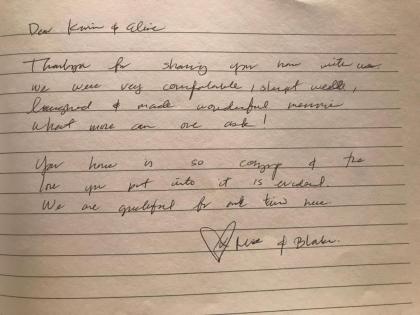 Dear Kevin & Alice
Thankyou for sharing your home with us.
We were very comfortable, slept well,
laughed & made wonderful memories
What more can one ask!
Your home is so & the
love you put into it is evident.
We are grateful for our time here
& Blake.